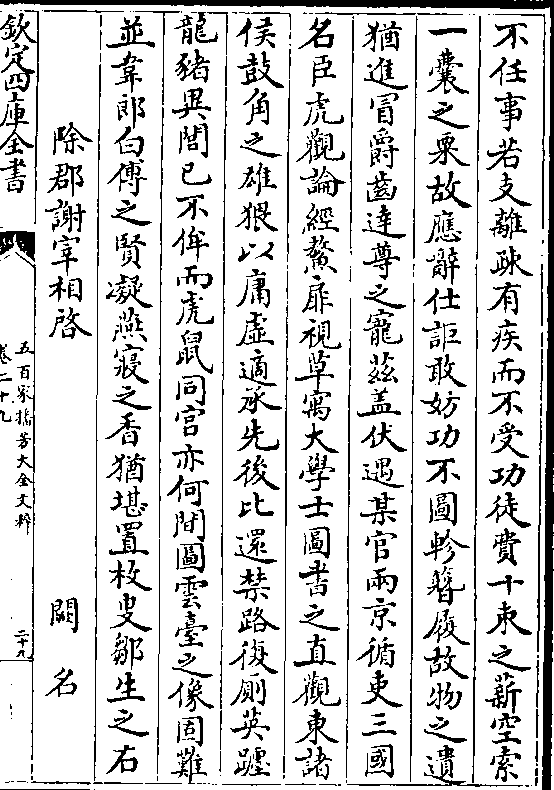 不任事若支離疎有疾而不受功徒費十束之薪空索
一囊之粟故應辭仕詎敢妨功不圖軫簪履故物之遺
猶進冒爵齒達尊之寵兹盖伏遇某官兩京循吏三國
名臣虎觀論經鰲扉視草寓大學士圖書之直觀東諸
侯鼓角之雄猥以庸虛適承先後比還禁路復厠英躔
龍豬異閭已不侔而虎鼠同宫亦何閒圖雲臺之像固難
並韋郎白傅之賢凝燕寢之香猶堪置枚叟鄒生之右
除郡謝宰相啓 闕名
欽定四庫全書
五百家播芳大全文粹
卷二十九
二十九